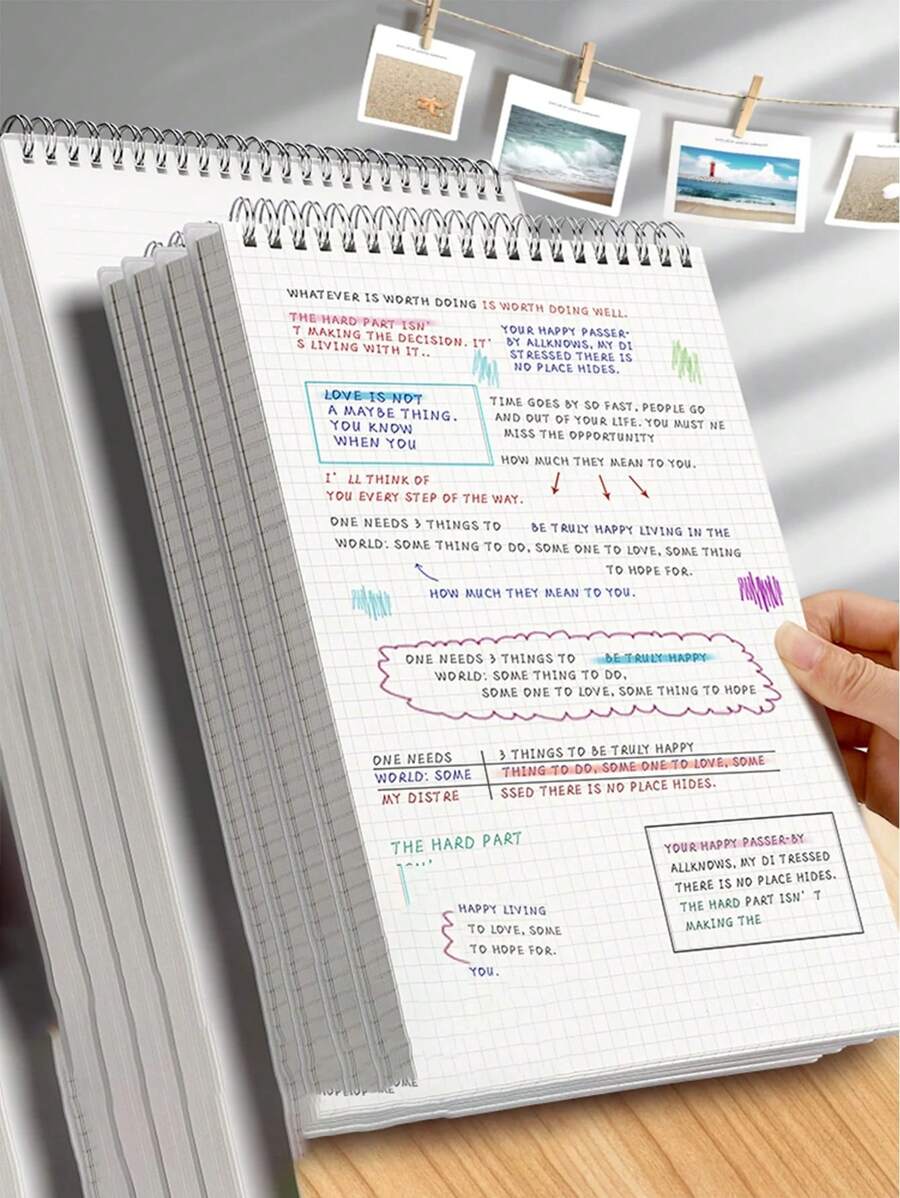 WHATEVER IS WORTH DOING IS WORTH DOING WELL.
THE HARD PART ISN'
T MAKING THE DECISION. IT'
S LIVING WITH IT..
YOUR HAPPY PASSER-
BY ALLKNOWS, MY DI
STRESSED THERE IS
NO PLACE HIDES.
LOVE IS NOT
A MAYBE THING.
YOU KNOW
WHEN YOU
TIME GOES BY SO FAST, PEOPLE GO
AND OUT OF YOUR LIFE. YOU MUST NE
MISS THE OPPORTUNITY
HOW MUCH THEY MEAN TO YOU.
I' LL THINK OF
YOU EVERY STEP OF THE WAY.
ONE NEEDS 3 THINGS TO BE TRULY HAPPY LIVING IN THE
WORLD: SOME THING TO DO, SOME ONE TO LOVE, SOME THING
TO HOPE FOR.
HOW MUCH THEY MEAN TO YOU.
ONE NEEDS 3 THINGS TO BE TRULY HAPPY
WORLD: SOME THING TO DO,
SOME ONE TO LOVE, SOME THING TO HOPE
ONE NEEDS 3 THINGS TO BE TRULY HAPPY
WORLD: SOME THING TO DO, SOME ONE TO LOVE, SOME
MY DISTRE SSED THERE IS NO PLACE HIDES.
THE HARD PART
HAPPY LIVING
TO LOVE, SOME
TO HOPE FOR.
YOU.
YOUR HAPPY PASSER-BY
ALLKNOWS, MY DI TRESSED
THERE IS NO PLACE HIDES.
THE HARD PART ISN' T
MAKING THE